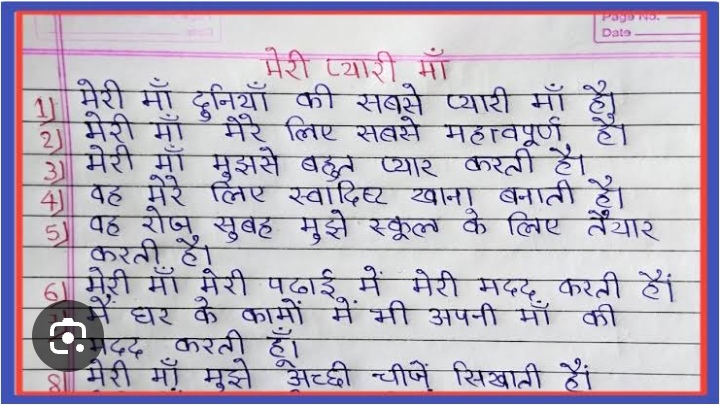 Page No.
Date
मेरी प्यारी माँ
1) मेरी माँ दुनियाँ की सबसे प्यारी माँ है।
2) मेरी माँ मेरे लिए सबसे महत्वपूर्ण है।
3) मेरी माँ मुझसे बहुत प्यार करती है।
4) वह मेरे लिए स्वादिष्ट खाना बनाती है।
5) वह रोज सुबह मुझे स्कूल के लिए तैयार
करती है।
6) मेरी माँ मेरी पढाई में मेरी मदद करती हैं
में घर के कामों में भी अपनी माँ की
मदद करती हूँ।
8) मेरी माँ मुझे अच्छी चीजें सिखाती हैं